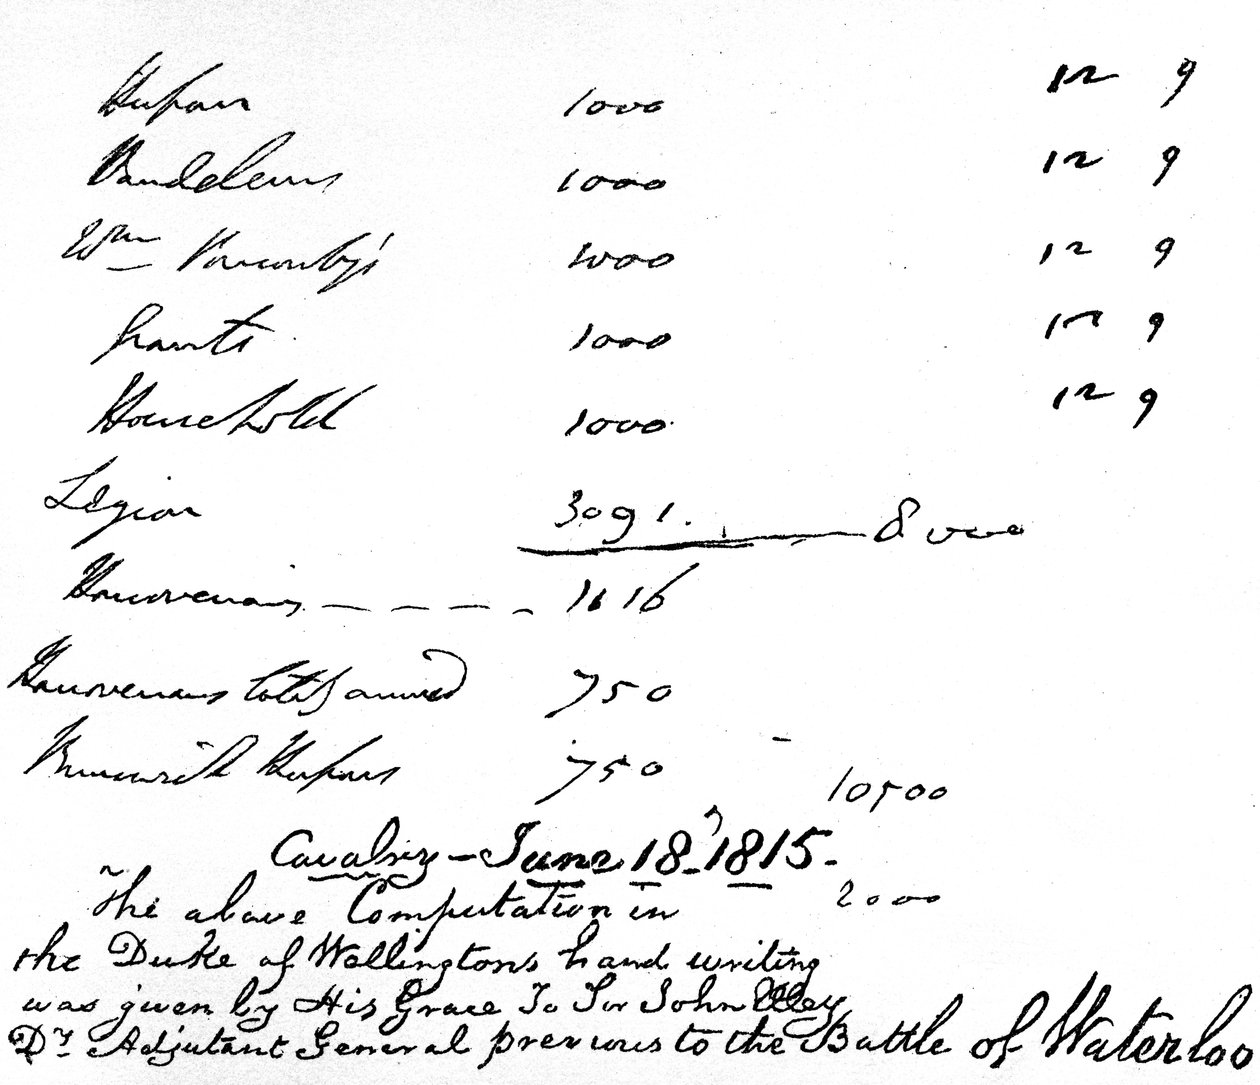 Hussars 1000 12 9
Vandeleurs 1000 12 9
Wm Ponsonby's 1000 12 9
Grants 1000 12 9
Household 1000 12 9
Legion 3091. 8000
Hanoverians - - - - 1116
Hanoverians lately arrived 750
Brunswick Hussars 750
10500
Cavalry - June 18, 1815.
2000
The above Computation in
the Duke of Wellingtons hand writing
was given by His Grace To Sir John Elley,
Dy Adjutant General previous to the Battle of Waterloo